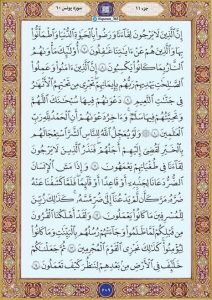 جزء ۱۱
سوره یونس ۱۰
إِنَّ ٱلَّذِينَ لَا يَرْجُونَ لِقَآءَنَا وَرَضُوا۟ بِٱلْحَيَوٰةِ ٱلدُّنْيَا وَٱطْمَأَنُّوا۟
بِهَا وَٱلَّذِينَ هُمْ عَنْ ءَايَـٰتِنَا غَـٰفِلُونَ ۝٧ أُو۟لَـٰٓئِكَ مَأْوَىٰهُمُ
ٱلنَّارُ بِمَا كَانُوا۟ يَكْسِبُونَ ۝٨ إِنَّ ٱلَّذِينَ ءَامَنُوا۟ وَعَمِلُوا۟
ٱلصَّـٰلِحَـٰتِ يَهْدِيهِمْ رَبُّهُم بِإِيمَـٰنِهِمْ تَجْرِى مِن تَحْتِهِمُ ٱلْأَنْهَـٰرُ
فِى جَنَّـٰتِ ٱلنَّعِيمِ ۝٩ دَعْوَىٰهُمْ فِيهَا سُبْحَـٰنَكَ ٱللَّهُمَّ
وَتَحِيَّتُهُمْ فِيهَا سَلَـٰمٌ وَءَاخِرُ دَعْوَىٰهُمْ أَنِ ٱلْحَمْدُ لِلَّهِ رَبِّ
ٱلْعَـٰلَمِينَ ۝١٠ وَلَوْ يُعَجِّلُ ٱللَّهُ لِلنَّاسِ ٱلشَّرَّ ٱسْتِعْجَالَهُم
بِٱلْخَيْرِ لَقُضِىَ إِلَيْهِمْ أَجَلُهُمْ فَنَذَرُ ٱلَّذِينَ لَا يَرْجُونَ
لِقَآءَنَا فِى طُغْيَـٰنِهِمْ يَعْمَهُونَ ۝١١ وَإِذَا مَسَّ ٱلْإِنسَـٰنَ
ٱلضُّرُّ دَعَانَا لِجَنۢبِهِۦٓ أَوْ قَاعِدًا أَوْ قَآئِمًا فَلَمَّا كَشَفْنَا عَنْهُ
ضُرَّهُۥ مَرَّ كَأَن لَّمْ يَدْعُنَآ إِلَىٰ ضُرٍّ مَّسَّهُۥ كَذَٰلِكَ زُيِّنَ
لِلْمُسْرِفِينَ مَا كَانُوا۟ يَعْمَلُونَ ۝١٢ وَلَقَدْ أَهْلَكْنَا ٱلْقُرُونَ
مِن قَبْلِكُمْ لَمَّا ظَلَمُوا۟ وَجَآءَتْهُمْ رُسُلُهُم بِٱلْبَيِّنَـٰتِ وَمَا كَانُوا۟
لِيُؤْمِنُوا۟ كَذَٰلِكَ نَجْزِى ٱلْقَوْمَ ٱلْمُجْرِمِينَ ۝١٣ ثُمَّ جَعَلْنَـٰكُمْ
خَلَـٰٓئِفَ فِى ٱلْأَرْضِ مِنۢ بَعْدِهِمْ لِنَنظُرَ كَيْفَ تَعْمَلُونَ ۝١٤
۲۰۹